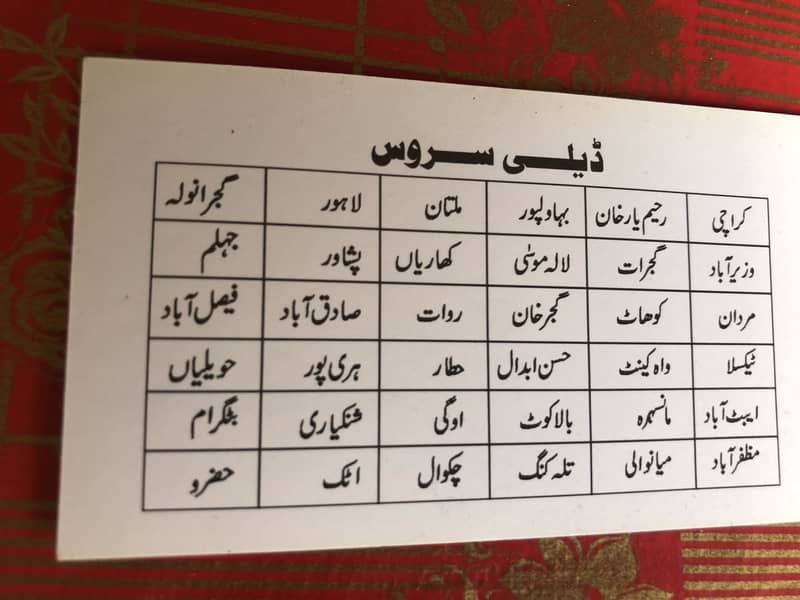 ڈیلی سروس
کراچی رحیم یارخان بہاولپور ملتان لاہور گجرانولہ
وزیرآباد گجرات لالہ موسیٰ کھاریاں پشاور جہلم
مردان کوھاٹ گجرخان روات صادق آباد فیصل آباد
ٹیکسلا واہ کینٹ حسن ابدال حطار ہری پور حویلیاں
ایبٹ آباد مانسہرہ بالاکوٹ اوگی شنکیاری بٹگرام
مظفرآباد میانوالی تلہ کنگ چکوال اٹک حضرو